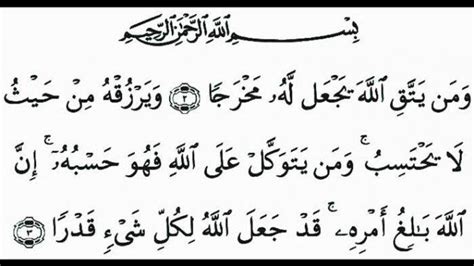 بِسْمِ ٱللَّهِ ٱلرَّحْمَٰنِ ٱلرَّحِيمِ
وَمَن يَتَّقِ ٱللَّهَ يَجْعَل لَّهُۥ مَخْرَجًا ۝٢ وَيَرْزُقْهُ مِنْ حَيْثُ
لَا يَحْتَسِبُ ۚ وَمَن يَتَوَكَّلْ عَلَى ٱللَّهِ فَهُوَ حَسْبُهُۥٓ ۚ إِنَّ
ٱللَّهَ بَـٰلِغُ أَمْرِهِۦ ۚ قَدْ جَعَلَ ٱللَّهُ لِكُلِّ شَىْءٍ قَدْرًا ۝٣